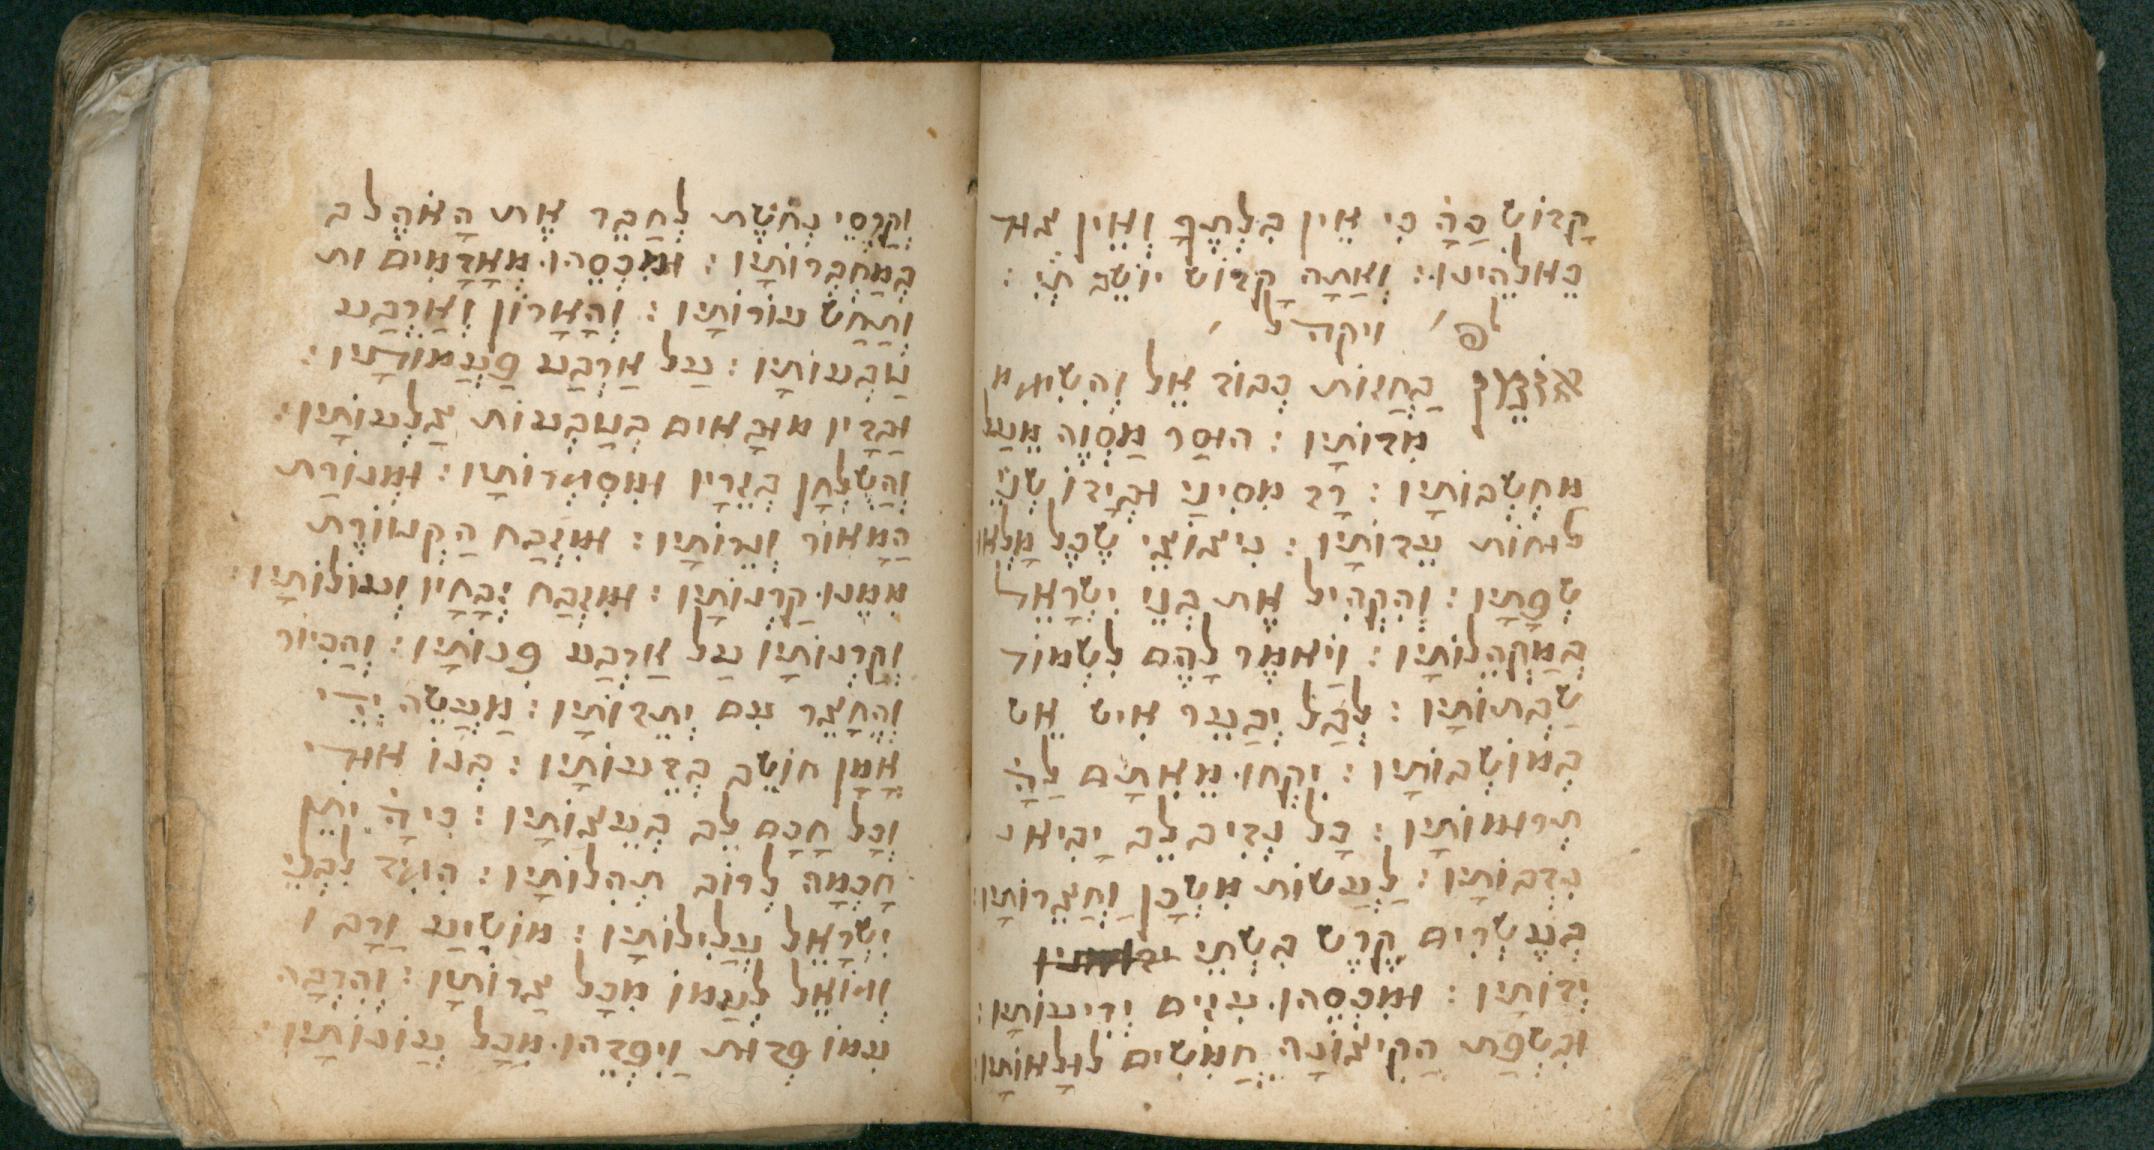 קָדוֹשׁ כַּהָ כִּי אֵין בִּלְתֶּךָ וְאֵין צוּר
כֵּאלֹהֵינוּ : וְאַתָּה קָדוֹשׁ יוֹשֵׁב תְּיִ :
לפ׳ ויקהל ׳
בַּחֲזוֹת כְּבוֹד אֵל וְהִשִּׂיא מ
מִדּוֹתָיו : הוּסַר מַסְוֶה מֵעַל
מַחְשְׁבוֹתָיו : רָד מִסִּינַי וּבְיָדוֹ שְׁנֵי
לוּחוֹת עֵדוֹתָיו : נִיצוֹצֵי שֶׂכֶל מָלְאוּ
שְׂפָתָיו : וְהִקְהִיל אֶת בְּנֵי יִשְׂרָאֵל
בְּמַקְהֵלוֹתָיו : וַיֹּאמֶר לָהֶם לִשְׁמוֹר
שַׁבְּתוֹתָיו : לְבַל יְבַעֵר אִישׁ אֵשׁ
בְּמוֹשְׁבוֹתָיו : יִקְחוּ מֵאִתָּם לַהָ
תְּרוּמוֹתָיו : כָּל נְדִיב לֵב יָבִיא
נִדְבוֹתָיו : לַעֲשׂוֹת מִשְׁכָּן וַחֲצֵרוֹתָיו :
בְּעֶשְׂרִים קֶרֶשׁ בִּשְׁתֵּי
יְדוֹתָיו : וּמִכְסֵהוּ עִזִּים יְרִיעוֹתָיו :
וּבִשְׂפַת הַקִּיצוֹנָה חֲמִשִּׁים לוּלְאוֹתָיו :
וְקַרְסֵי נְחֹשֶׁת לְחַבֵּר אֶת הָאֹהֶל ב
בְּמַחְבְּרוֹתָיו : וּמִכְסֵהוּ מְאָדָּמִים ות
וְתַחַשׁ עוֹרוֹתָיו : וְהָאָרוֹן וְאַרְבַּע
טַבְּעוֹתָיו : עַל אַרְבַּע פַּעֲמוֹתָיו :
וּבַדָּיו מוּבָאִים בְּטַבְּעוֹת צַלְעוֹתָיו :
וְהַשֻּׁלְחָן בְּזֵרָיו וּמִסְגְּרוֹתָיו : וּמְנוֹרַת
הַמָּאוֹר וְנֵרוֹתָיו : וּמִזְבַּח הַקְּטוֹרֶת
מִמֶּנּוּ קַרְנוֹתָיו : וּמִזְבַּח זְבָחָיו וְעוֹלוֹתָיו :
וְקַרְנוֹתָיו עַל אַרְבַּע פִּנּוֹתָיו : וְהַכִּיּוֹר
וְהֶחָצֵר עִם יְתֵדוֹתָיו : מַעֲשֵׂה יְדֵי
אָמָּן חוֹשֵׁב בְּדֵעוֹתָיו : בְּנוֹ אוּרִי
וְכָל חֲכַם לֵב בְּעֵצוֹתָיו : כִּי הָ יִתֵּן
חָכְמָה לְרוֹב תְּהִלּוֹתָיו : הִגִּיד לִבְנֵי
יִשְׂרָאֵל עֲלִילוֹתָיו : מוֹשִׁיעַ וָרָב ו
וְגוֹאֵל לְעַמּוֹ מִכָּל צָרוֹתָיו : וְהִרְבָּה
עִמּוֹ פְּדוּת וַיִּפְדֵהוּ מִכָּל עֲוֹנוֹתָיו :